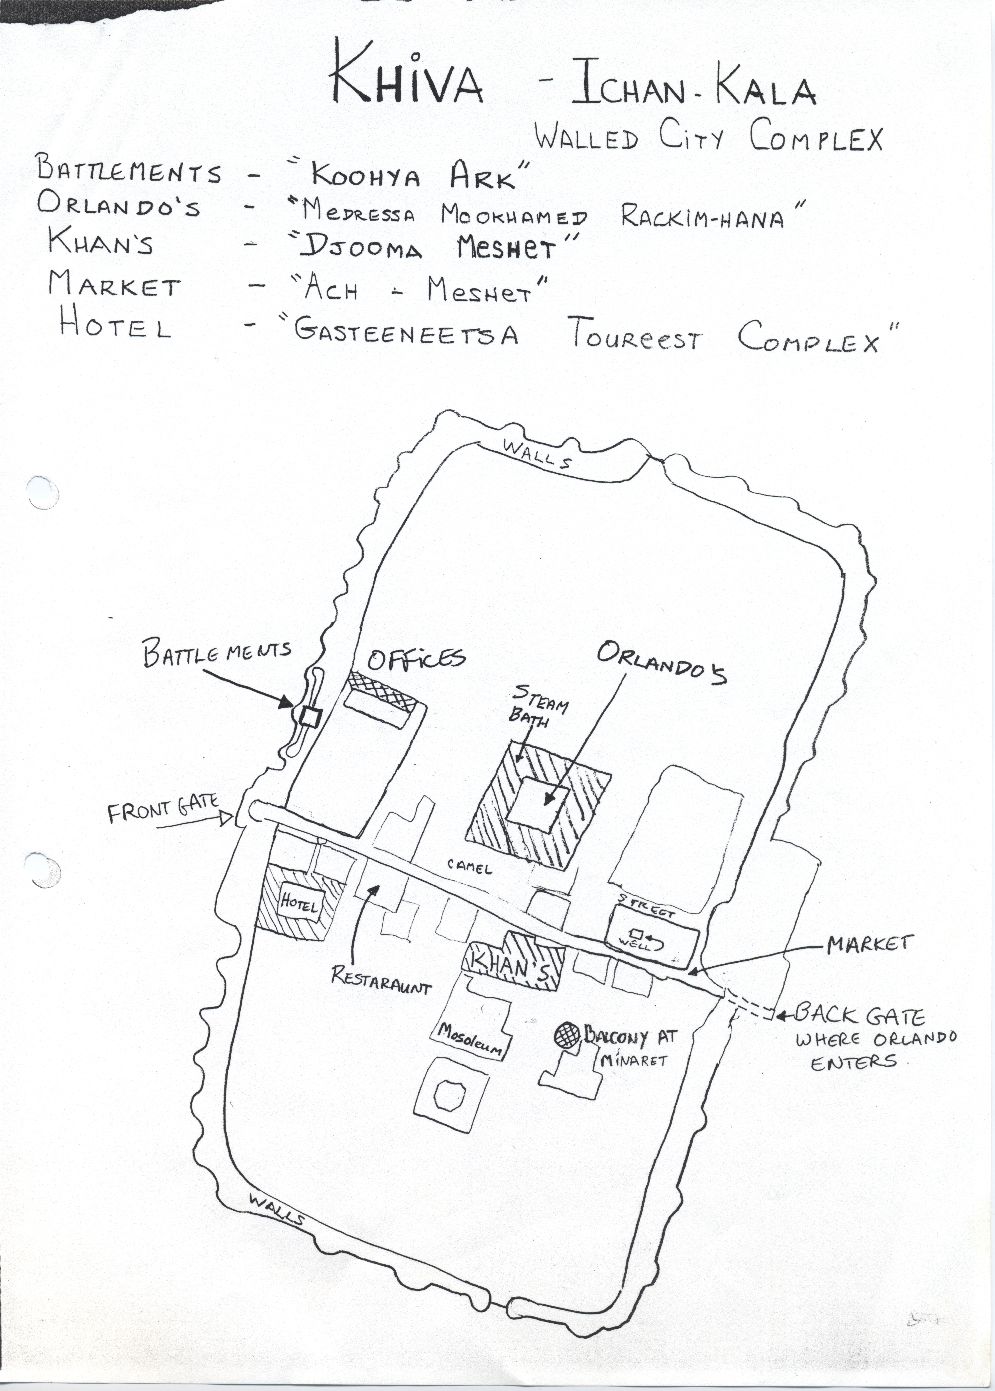 KHiVA - ICHAN-KALA
WALLED CiTY COMPLEX
BATTLEMENTS - "KOOHYA ARK"
ORLANDO'S - "MEDRESSA MOOKHAMED RACKIM-HANA"
KHAN'S - "DJOOMA MESHET"
MARKET - "ACH - MESHET"
HOTEL - "GASTEENEETSA TOUREEST COMPLEX"
WALLS
BATTLEMENTS
OFFiCES
ORLANDO'S
STEAM
BATH
FRONT GATE
CAMEL
HOTEL
STREET
WELL
MARKET
KHAN'S
RESTARAUNT
BACK GATE
WHERE ORLANDO
ENTERS
MOSOLEUM
BALCONY AT
MiNARET
WALLS